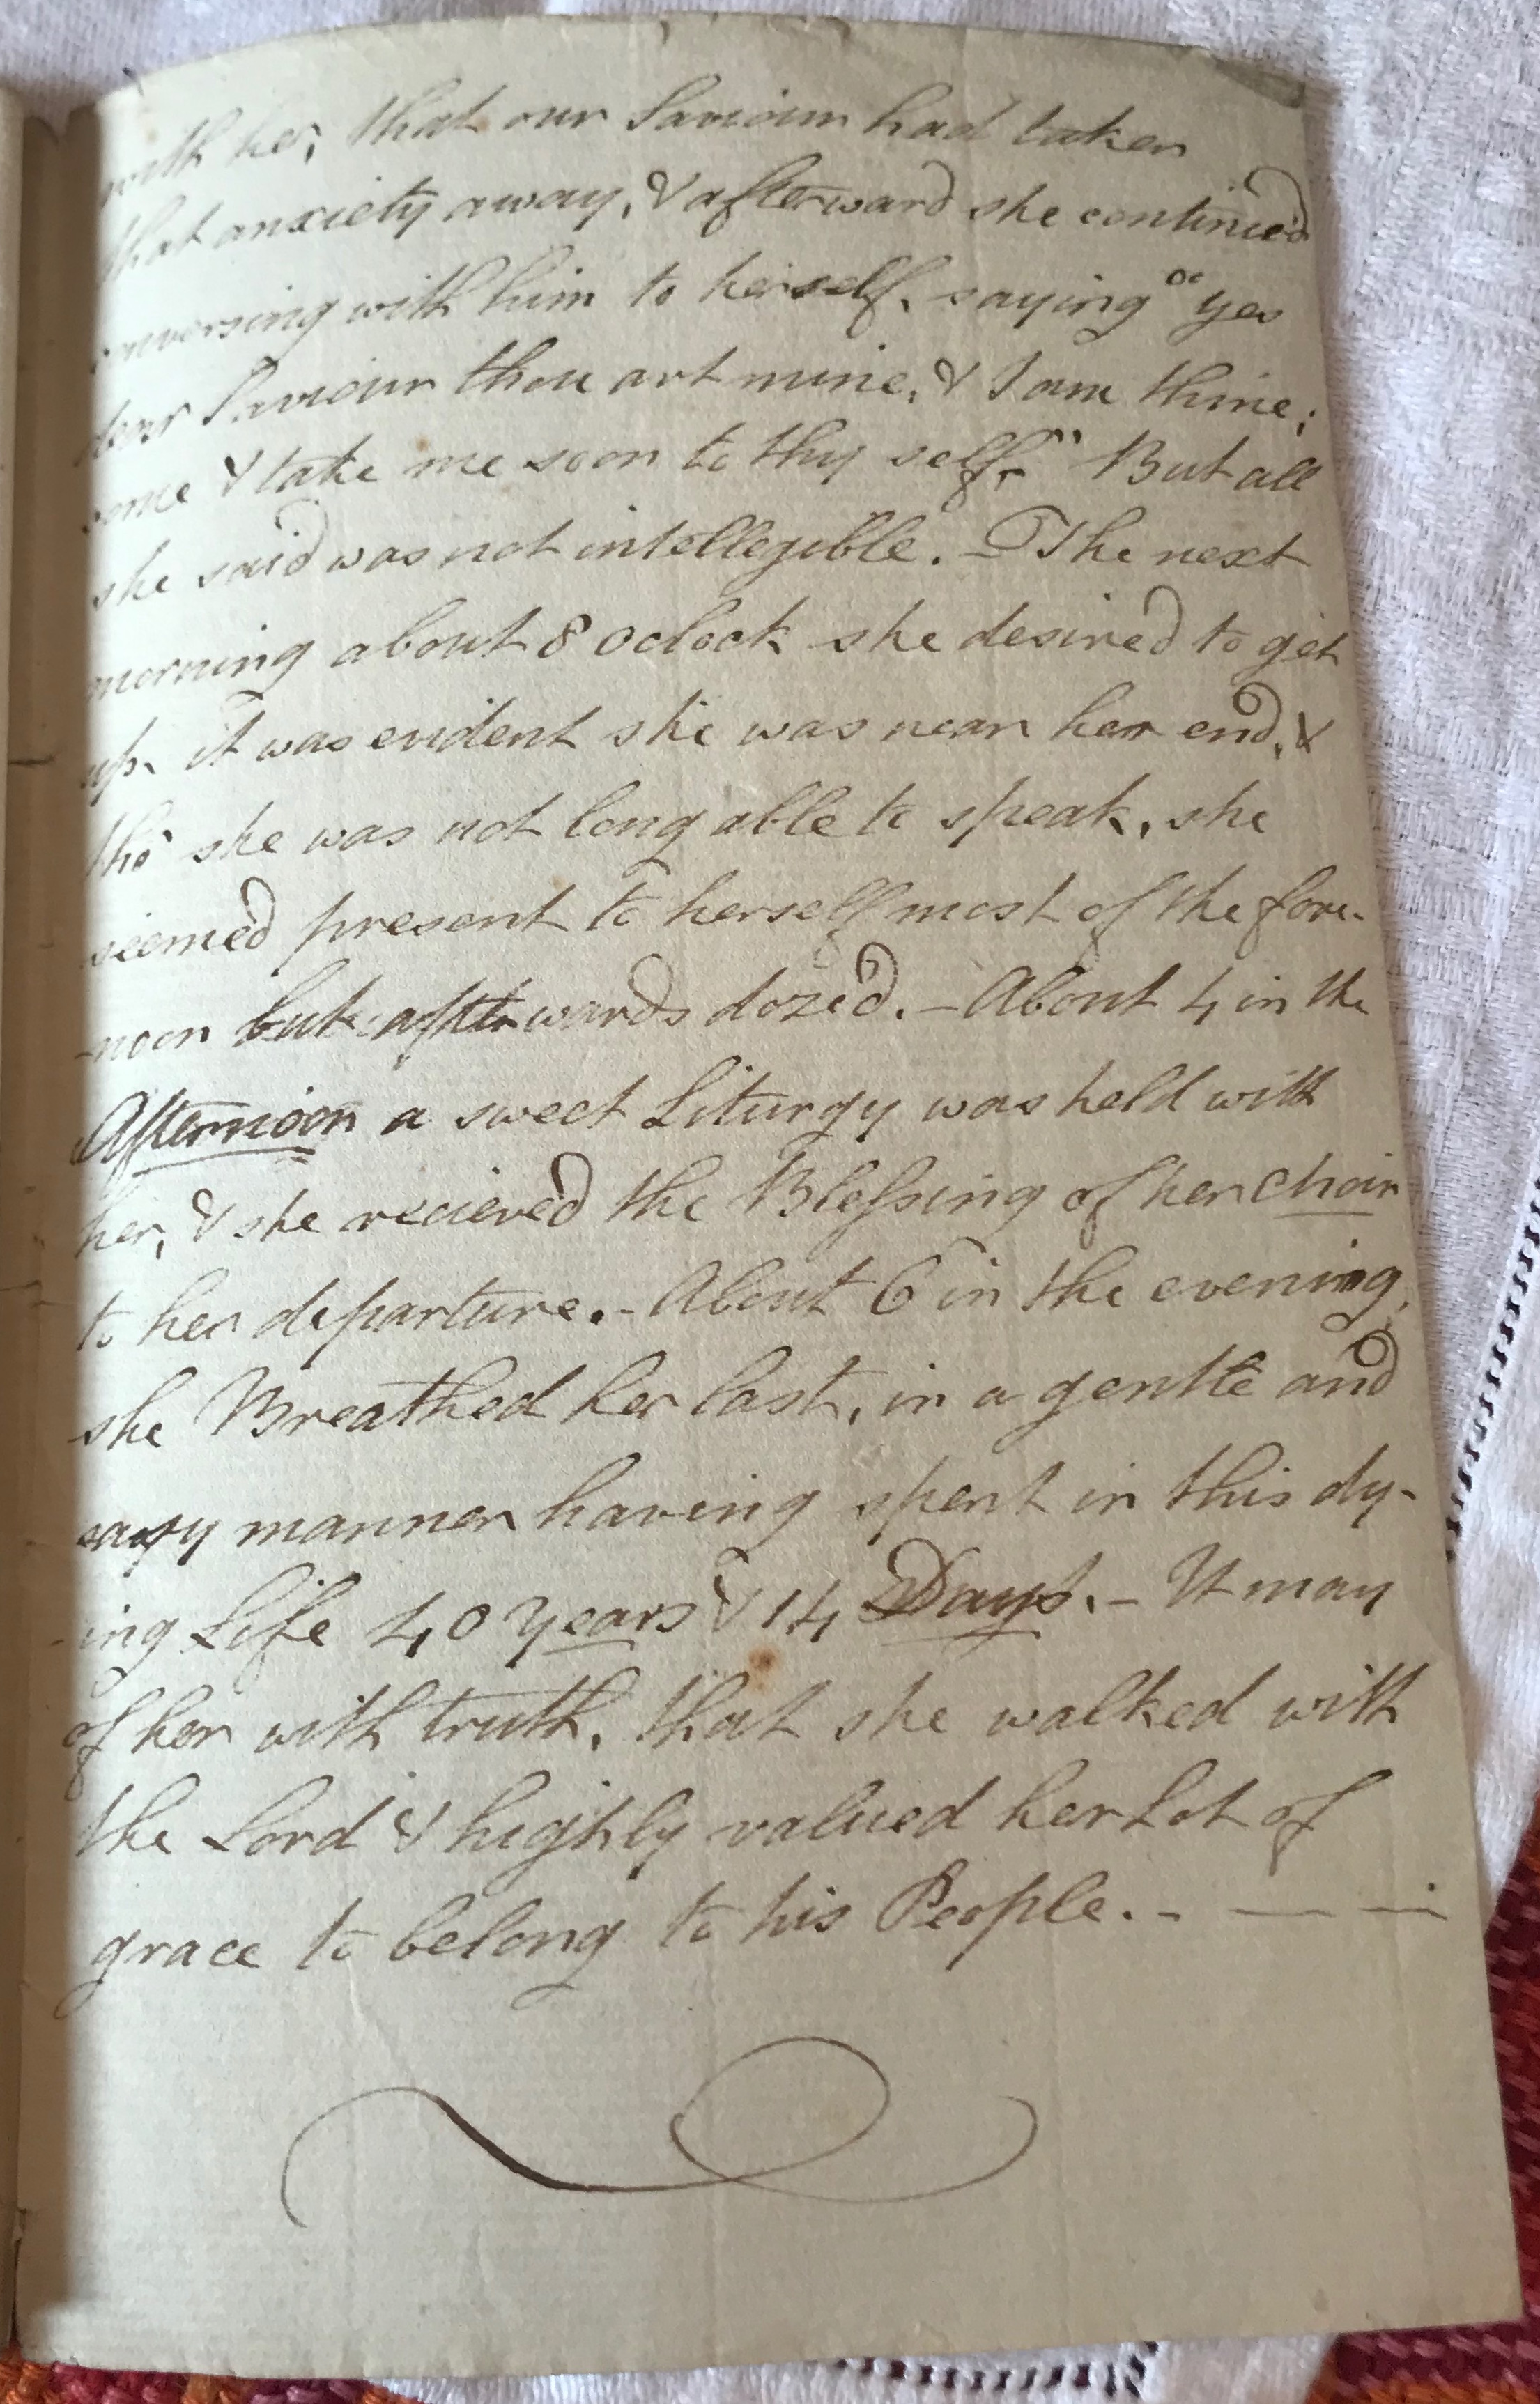 with her, that our Saviour had taken
that anxiety away, & afterward she continued
conversing with him to herself, saying "Yes
dear Saviour thou art mine, & I am thine;
come & take me soon to thy self." But all
she said was not intellegible. – The next
morning about 8 oclock she desired to get
up. it was evident she was near her end, &
tho' she was not long able to speak, she
seemed present to herself most of the fore-
-noon but afterwards dozed. – About 4 in the
Afternoon a sweet Liturgy was held with
her, & she recieved the Blessing of her Choir
to her departure. – About 6 in the evening,
she Breathed her last, in a gentle and
easy manner having spent in this dy-
-ing Life 40 years & 14 Days. – It may
of her with truth, that she walked with
the Lord & highly valued her Lot of
grace to belong to his People. – — —